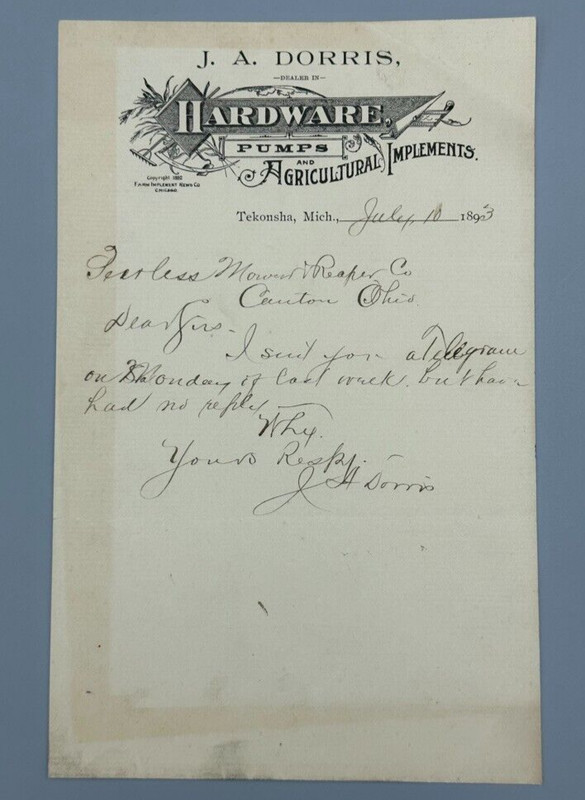 J. A. DORRIS,
—DEALER IN—
HARDWARE,
PUMPS
AND
AGRICULTURAL IMPLEMENTS.
Copyright 1892
FARM IMPLEMENT NEWS CO
CHICAGO.
Tekonsha, Mich., July, 10 1893
Peerless Mower & Reaper Co
Canton Ohio.
Dear Sirs -
I sent you a Telegram
on Monday of last week. but have
had no reply -
Why.
Yours Respy. -
J A Dorris